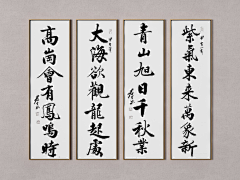 紫氣東來萬象新
青山旭日千秋業
大海欲觀龍起處
高崗會有鳳鳴時